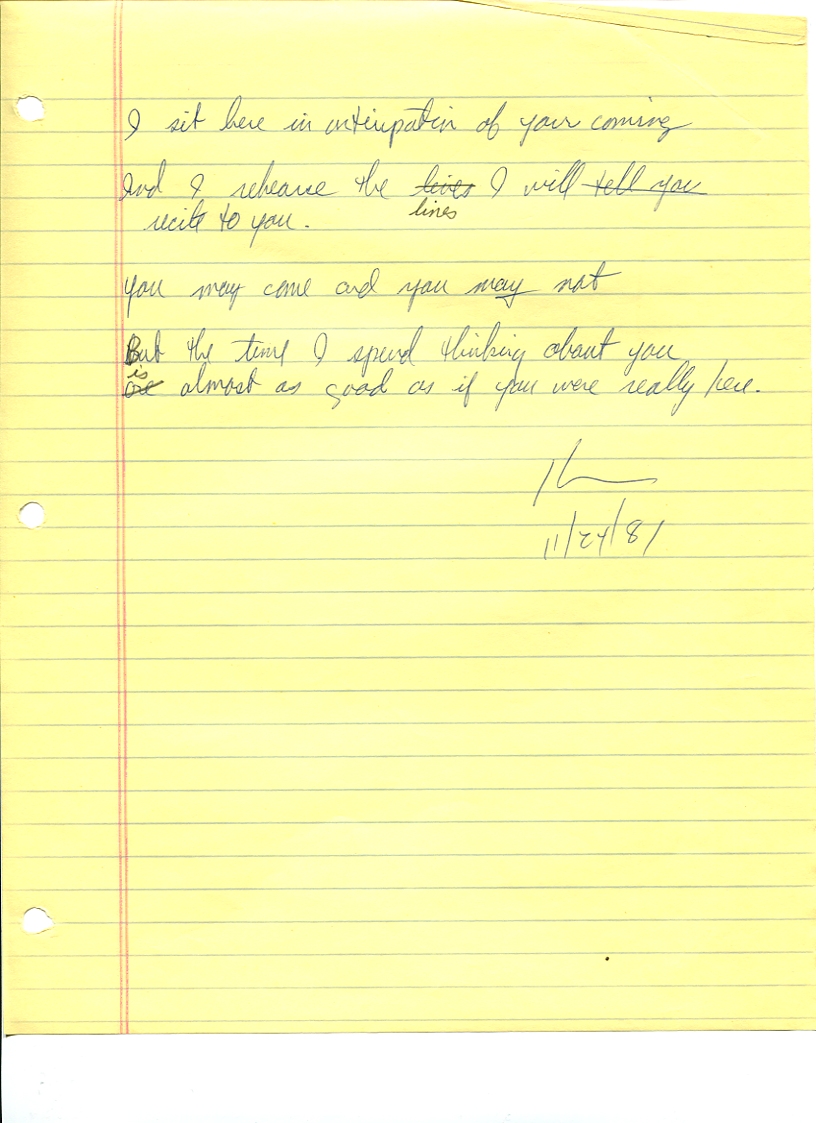 I sit here in anticipation of your coming
And I rehearse the lives I will tell you
lines
recite to you.
you may come and you may not
But the time I spend thinking about you
is
are almost as good as if you were really here.
11/24/81